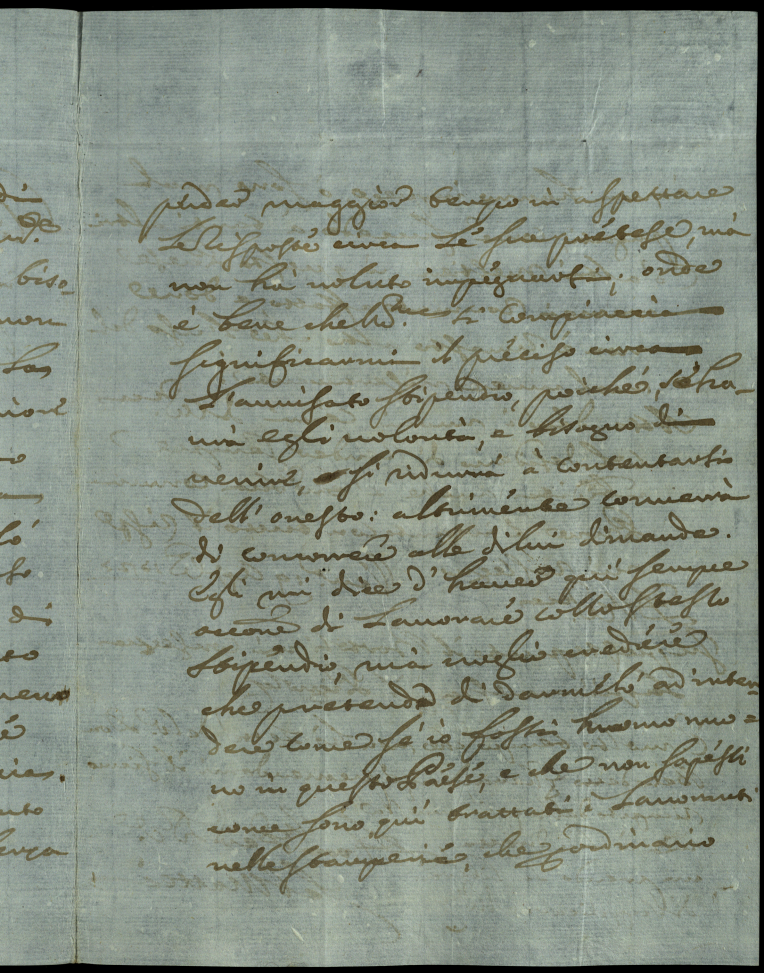 perder maggior tempo in aspettare
le risposte circa le sue pretese, mà
non hà voluto impegnarsi; onde
è bene che si compiaccia
significarmi il preciso circa
l'avvisato stipendio, poiche, se ha-
vrà egli volontà, e bisogno di
venire, si ridurrà à contentarsi
dell'onesto: altrimente converrà
di concorrere alle di lui dimande.
Egli mi dice d'haver quì sempre
di lavorare collo stesso
stipendio, mà voglio credere
che pretenda di darmelo ad inten-
dere come se io fossi huomo nuo=
vo in questo Paese, e che non sapessi
come sono quì trattati i Lavoranti
nelle stamperie, che per ordinario
di
biso-
non
Las